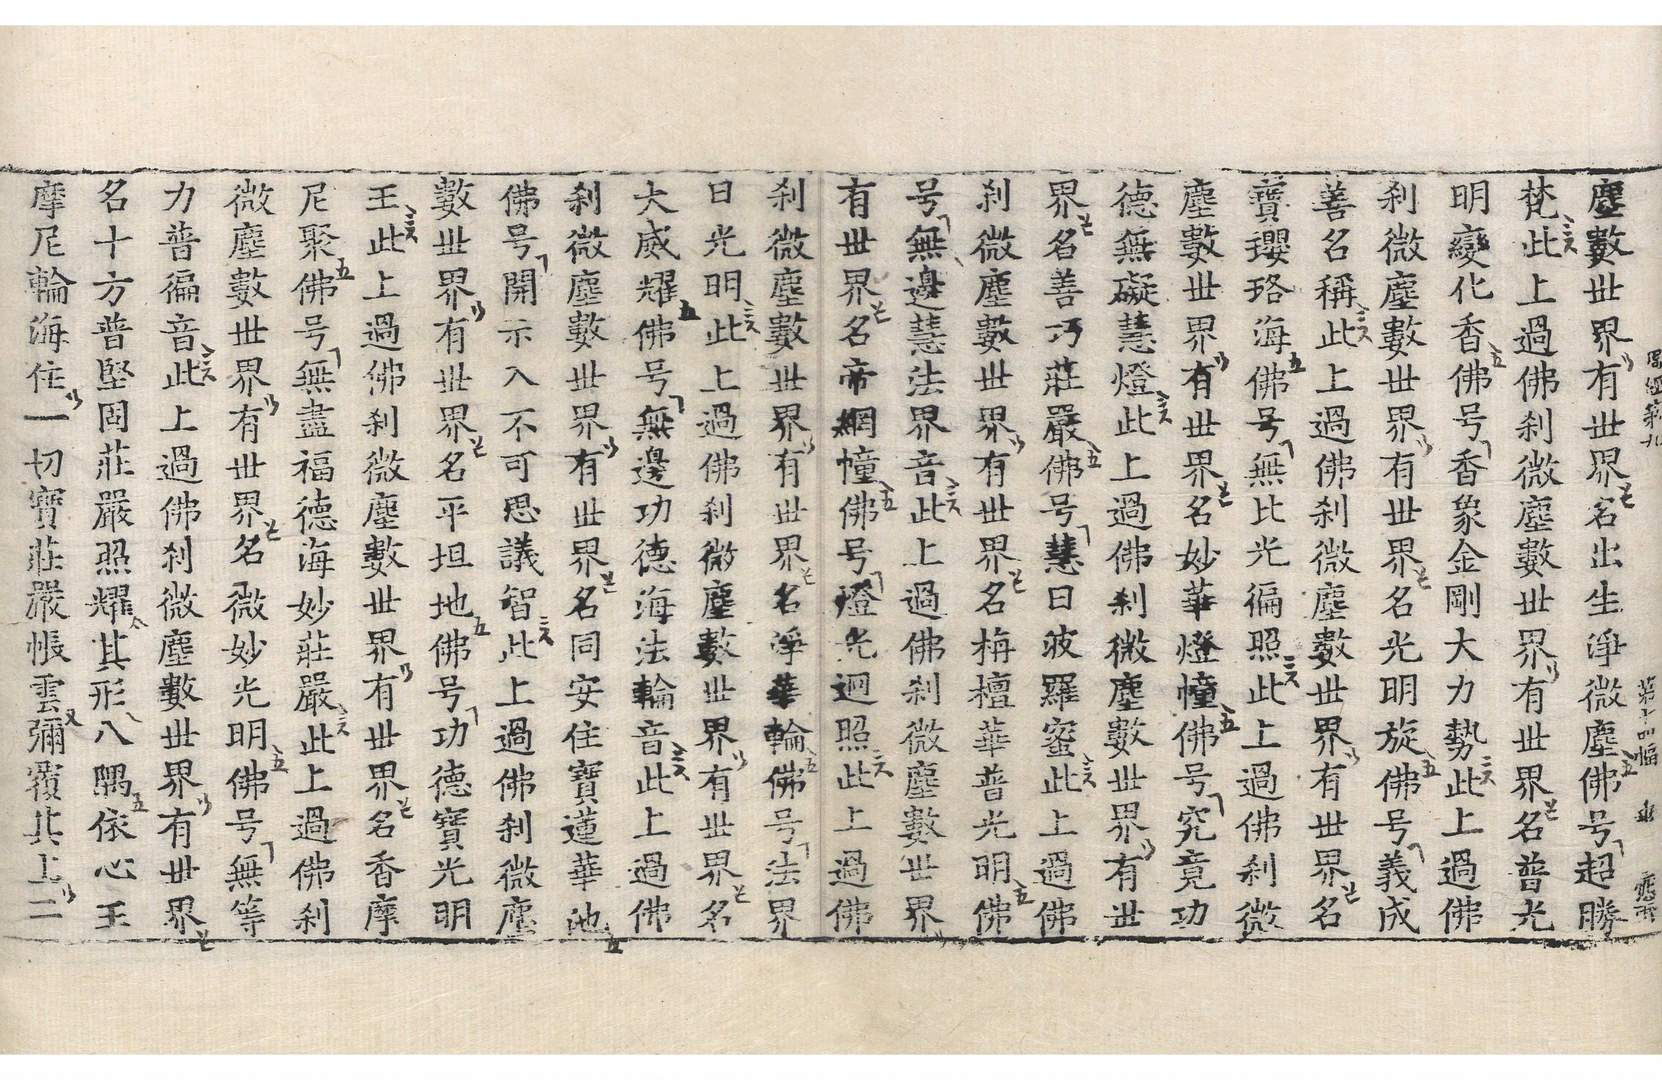 塵數世界有世界名出生淨微塵佛号超勝
梵此上過佛刹微塵數世界有世界名普光
明變化香佛号香象金剛大力勢此上過佛
刹微塵數世界有世界名光明旋佛号義成
善名稱此上過佛刹微塵數世界有世界名
寶瓔珞海佛号無比光徧照此上過佛刹微
塵數世界有世界名妙華燈幢佛号究竟功
德無礙慧燈此上過佛刹微塵數世界有世
界名善巧莊嚴佛号慧日波羅蜜此上過佛
刹微塵數世界有世界名栴檀華普光明佛
号無邊慧法界音此上過佛刹微塵數世界
有世界名帝網幢佛号燈光迥照此上過佛
刹微塵數世界有世界名淨華輪佛号法界
日光明此上過佛刹微塵數世界有世界名
大威耀佛号無邊功德海法輪音此上過佛
刹微塵數世界有世界名同安住寶蓮華池
佛号開示入不可思議智此上過佛刹微塵
數世界有世界名平坦地佛号功德寶光明
王此上過佛刹微塵數世界有世界名香摩
尼聚佛号無盡福德海妙莊嚴此上過佛刹
微塵數世界有世界名微妙光明佛号無等
力普徧音此上過佛刹微塵數世界有世界
名十方普堅固莊嚴照耀其形八隅依心王
摩尼輪海住一切寶莊嚴帳雲彌覆其上二